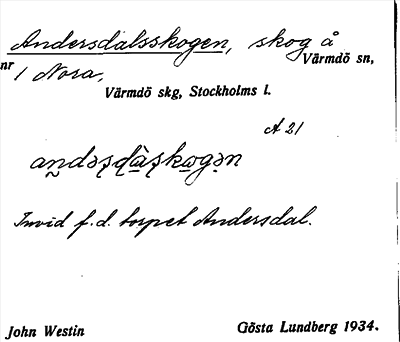 Andersdalsskogen, skog å
Värmdö sn,
nr 1 Nora,
Värmdö skg, Stockholms l.
A 21
Invid f.d. torpet Andersdal.
John Westin
Gösta Lundberg 1934.